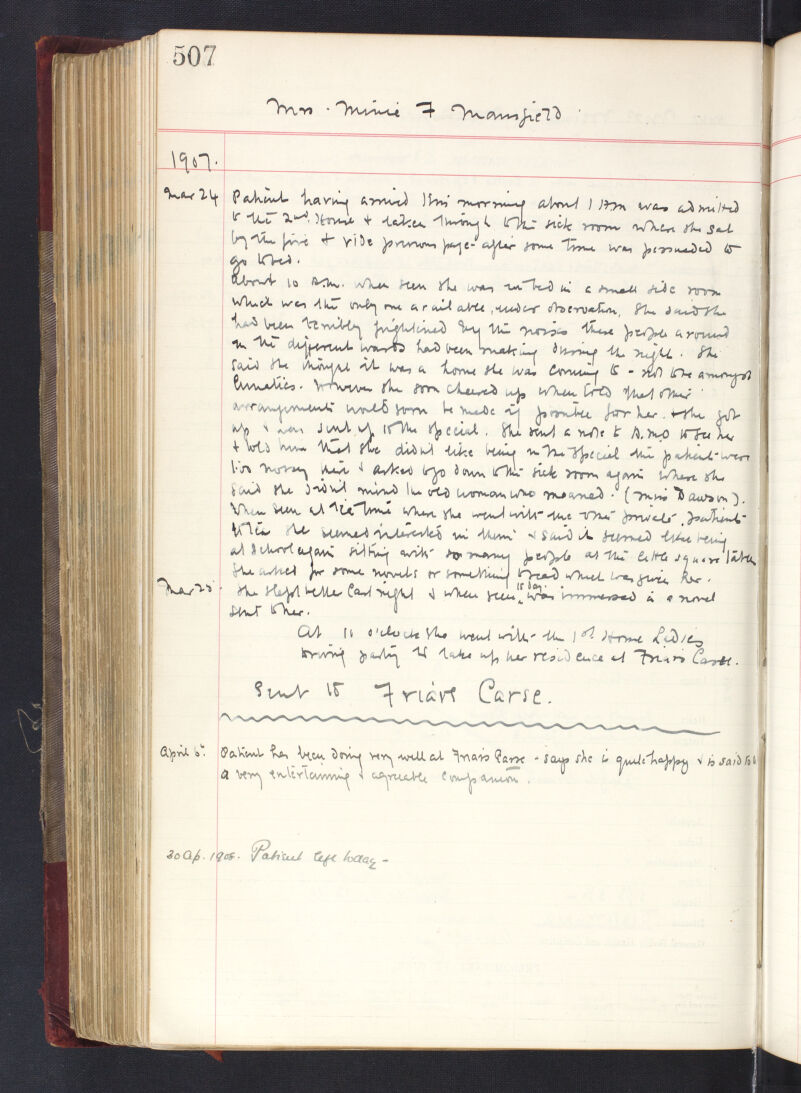 507
Mrs. Minie F Mansfield
1907.
Mar 24 Patient having arrived this morning about 1 AM was admitted
to the 2nd House & taken through to the sick room where she sat
by the fire & vide previous page after some time was persuaded to
go to bed.
About 10 a.m. when seen she was in bed in a small side room
which was the only one available, under observation. She said she
had been terribly frightened by the noises these people around
in the different wards had been making during the night. She
said she thought it was a home she was coming to - not to be amongst
lunatics. However she soon cheered up when told that other
arrangements would soon be made if possible for her. & she got
up & was sent up to the special. She sent a note to A.M.O to see her
& told him that she didn't like being in the special the patients were
too noisy there & asked to go down to the sick room again where she
said she didn't mind the old woman who moaned. (Miss Dawson).
When seen at tea time where she went with the other private patients
to tea she seemed interested in them & said it seemed like being
at school again sitting with so many people at the little square tables
She asked for some novels or something to read which was given her.
Mar 25 She slept better last night & when seen to day was immersed in a novel
sent to her.
At 11 o'clock she went with the 1st Home Ladies
driving party to take up her residence at Friars Carse.
Sent to Friars Carse.
April 6th Patient has been doing very well at Friars Carse - says she is quite happy & is said to be
a very entertaining & agreeable companion.
30 Ap. 1908. Patient left today -